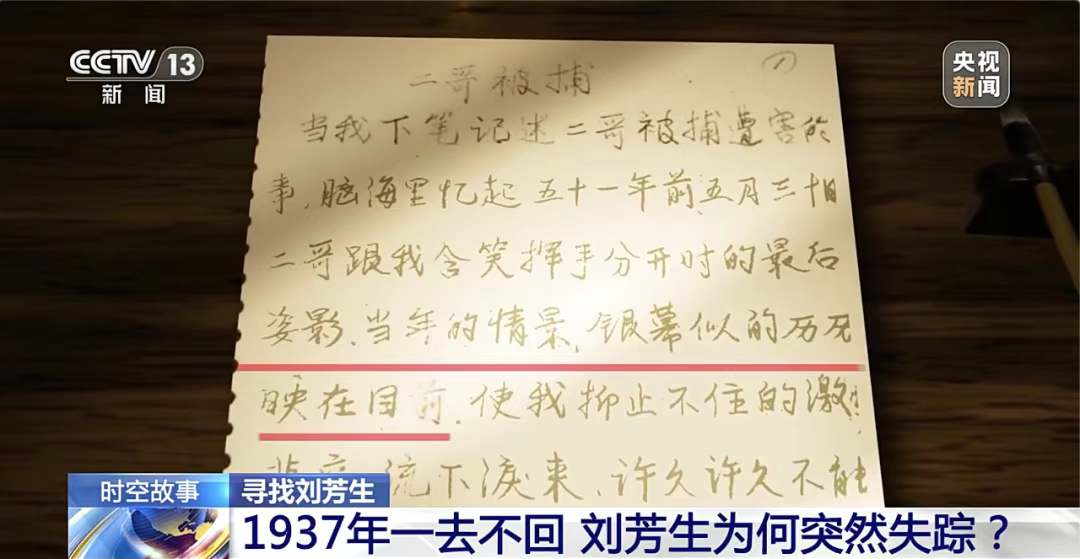 CCTV 13
新闻
央视
新闻
二哥被捕
(1)
当我下笔记述二哥被捕遭害的
事,脑海里忆起五十一年前五月三十日
二哥跟我含笑挥手分开时的最后
姿影、当年的情景,银幕似的历历
映在目前,使我抑止不住的激
流下泪来、许久许久不能
时空故事
寻找刘芳生
1937年一去不回 刘芳生为何突然失踪?